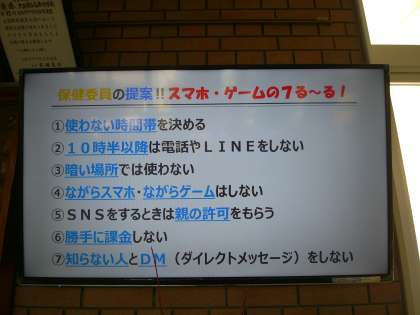 保健委員の提案!!スマホ・ゲームの7る~る!
①使わない時間帯を決める
②10時半以降は電話やLINEをしない
③暗い場所では使わない
④ながらスマホ・ながらゲームはしない
⑤SNSをするときは親の許可をもらう
⑥勝手に課金しない
⑦知らない人とDM(ダイレクトメッセージ)をしない